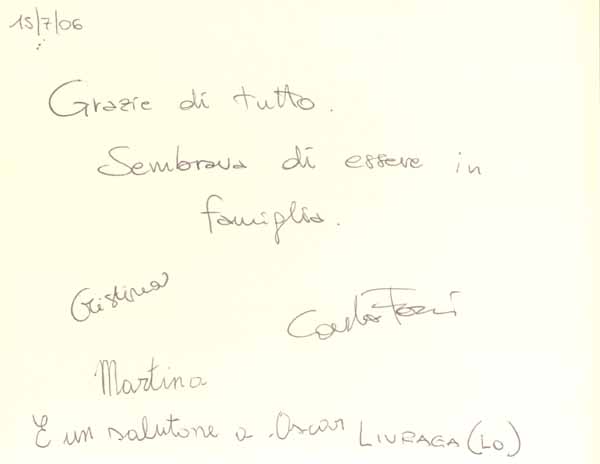 15/7/06
Grazie di tutto.
Sembrava di essere in
famiglia.
Cristina
Carlo
Martina
E un salutone a Oscar LIVRAGA (LO)